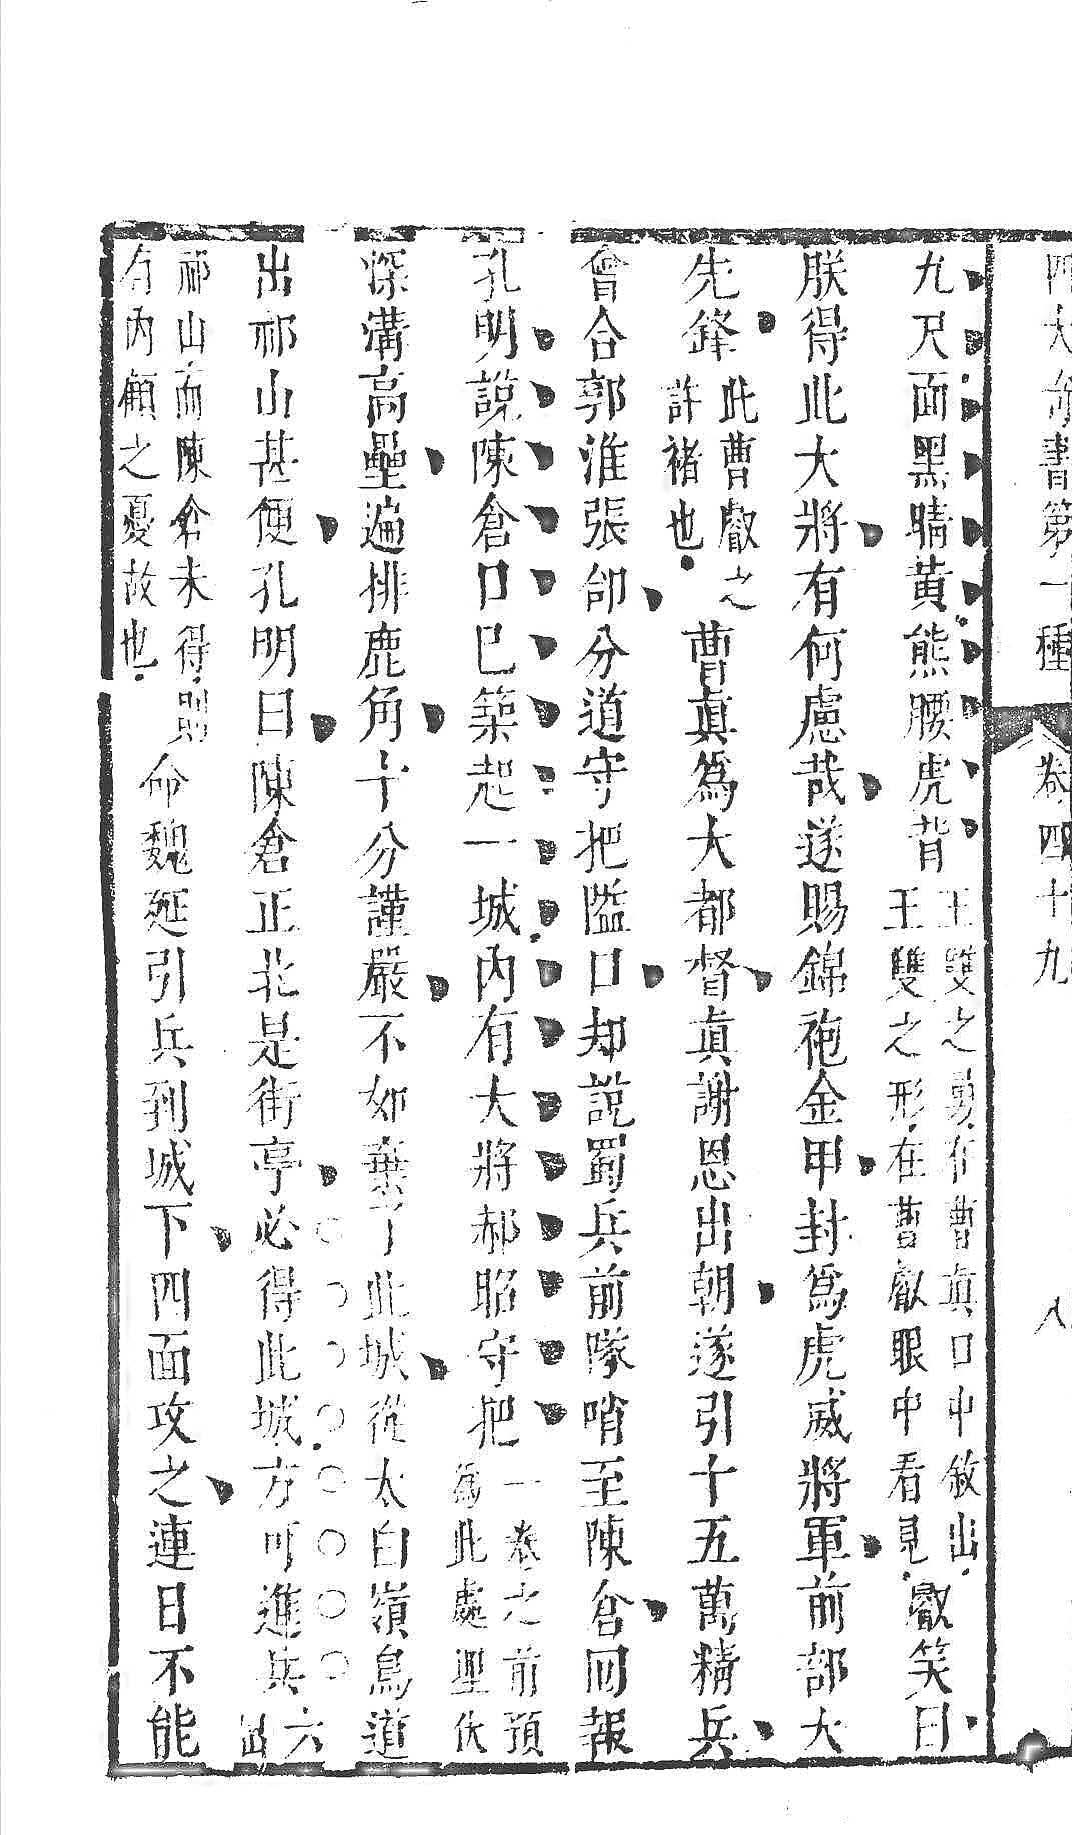 四大奇書第一種 卷四十九 八
九尺面黑睛黃熊腰虎背王雙之勇在曹真口中敘出王雙之形在曹叡眼中看見叡笑曰
朕得此大將有何慮哉遂賜錦袍金甲封為虎威將軍前部大
先鋒此曹叡之許褚也曹真為大都督真謝恩出朝遂引十五萬精兵
會合郭淮張郃分道守把隘口却說蜀兵前隊哨至陳倉回報
孔明說陳倉口已築起一城內有大將郝昭守把一卷之前預為此處埋伏
深溝高壘遍排鹿角十分謹嚴不如棄了此城從太白嶺鳥道
出祁山甚便孔明曰陳倉正北是街亭必得此城方可進兵六出
祁山而陳倉未得則有內顧之憂故也命魏延引兵到城下四面攻之連日不能